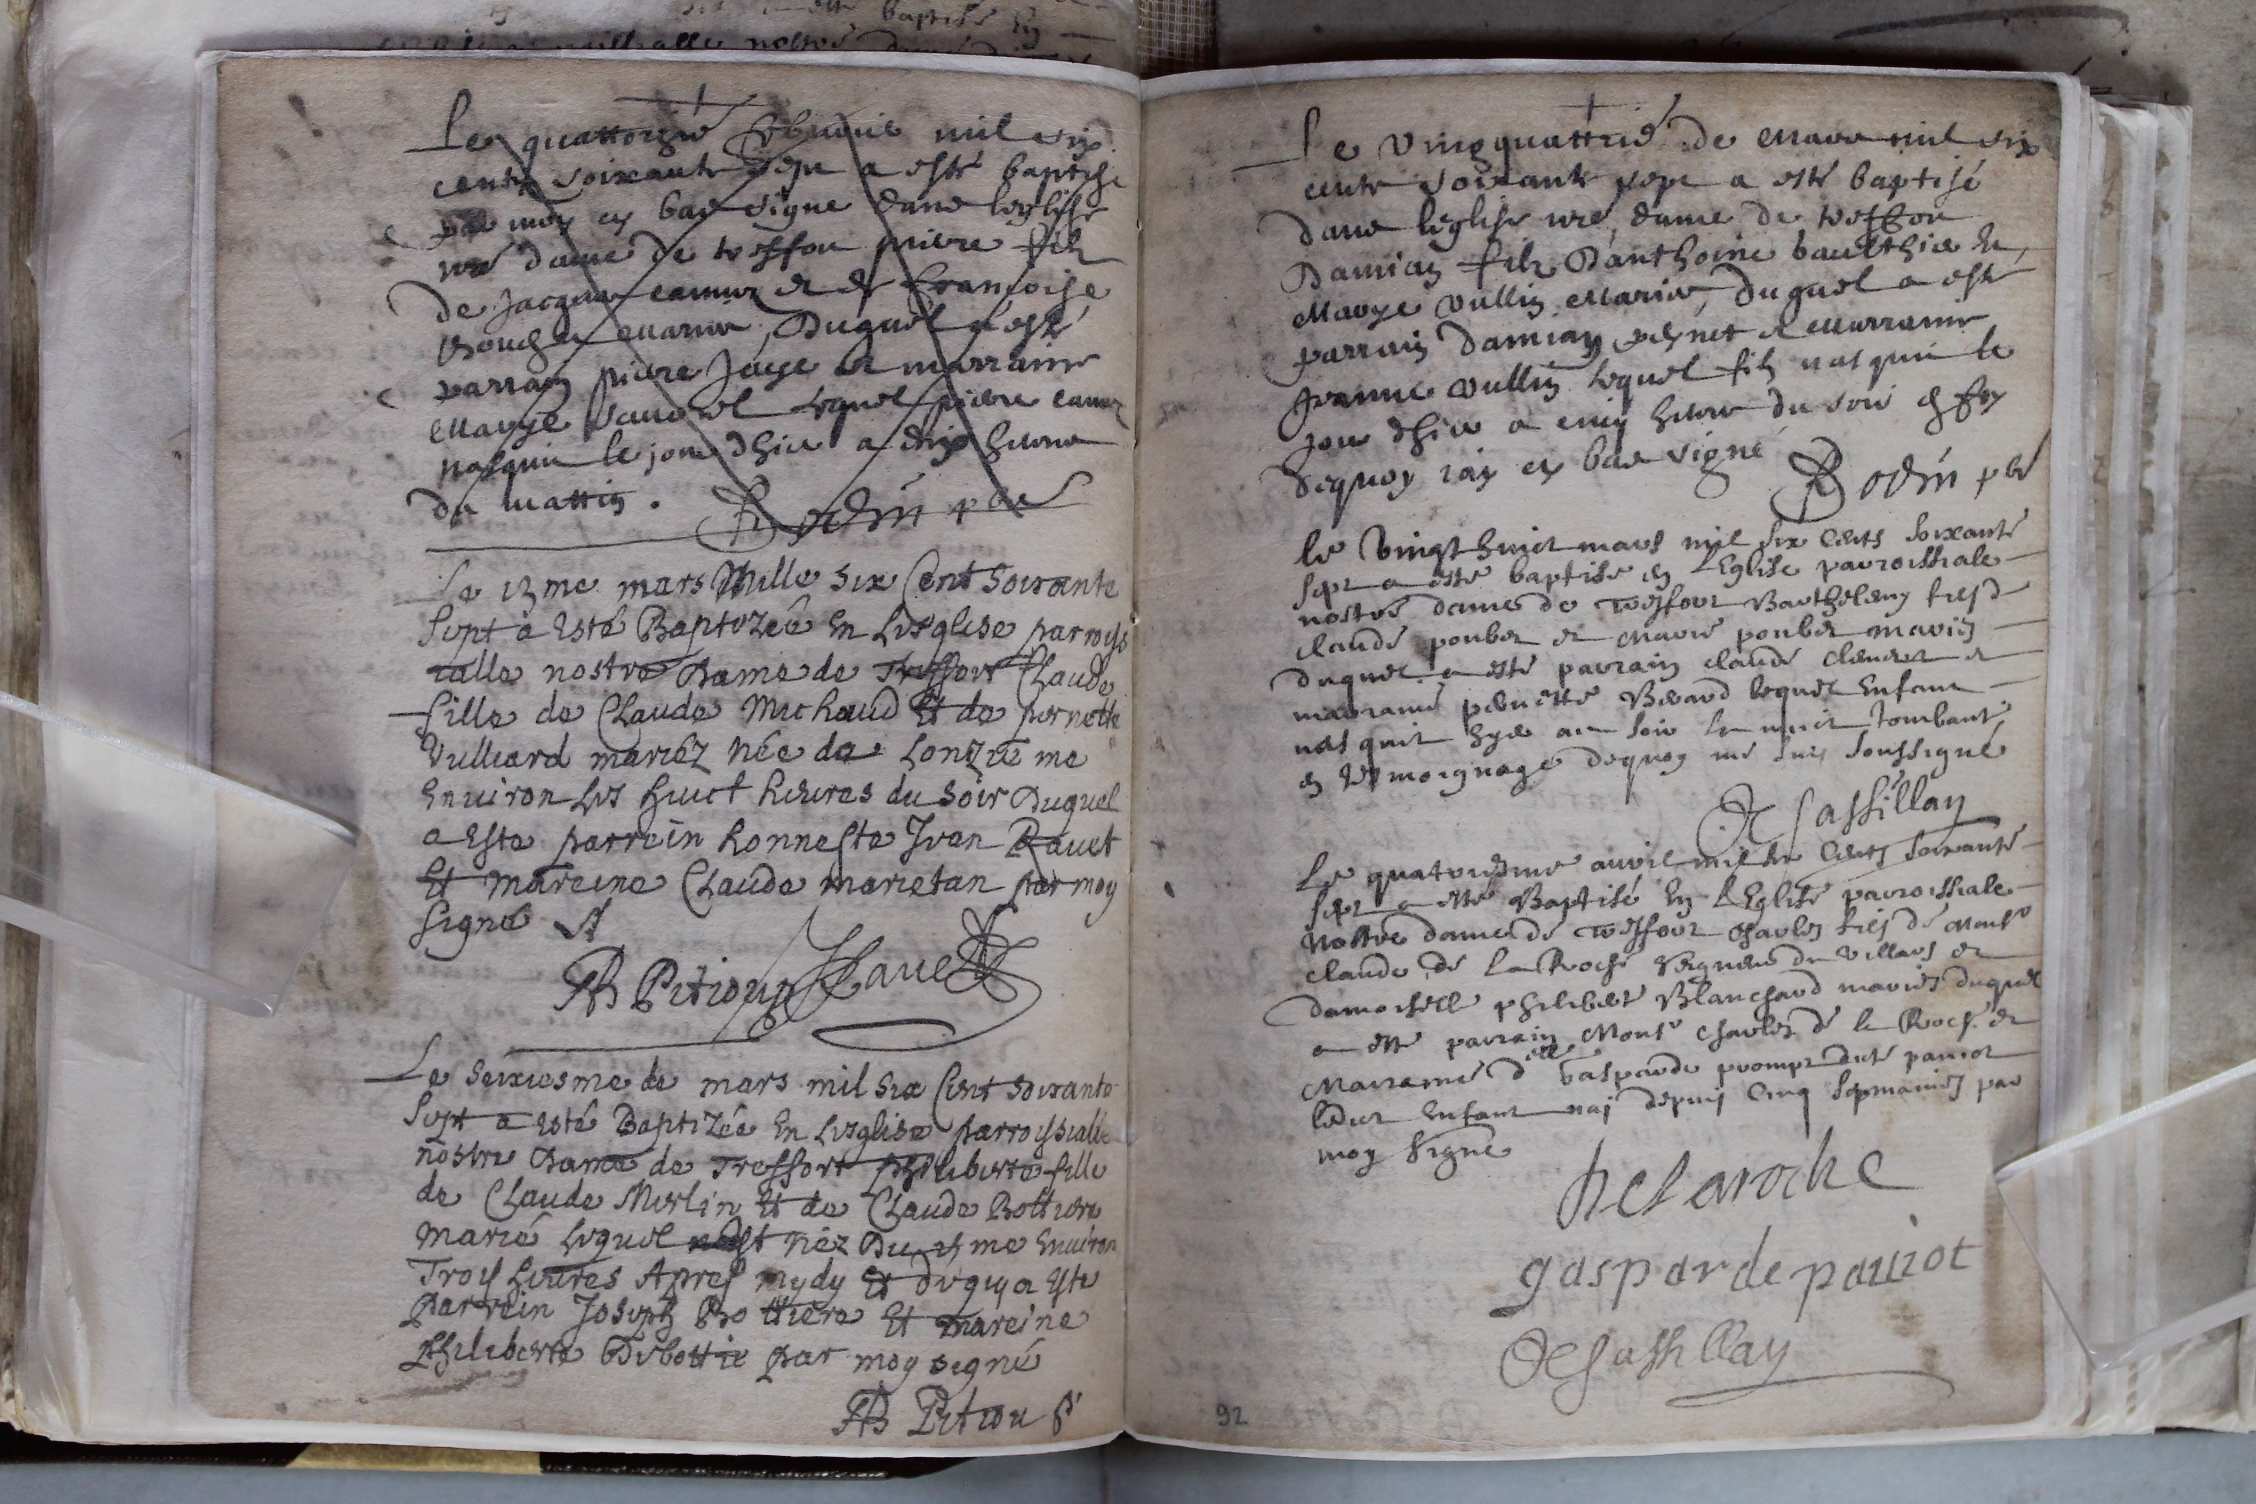 Le quattorzie febvrie mil six
cents soixante sept a esté baptisé
par moy cy bas signe dans leglise
nre dame de treffou pierre filz
de Jacques camuz et de francoise
bouchex mariez, Duquel a esté
parrain pierre Jaye et marraine
Marye lequel pierre camuz
nasquit le jour dhier a dix heures
du mattin. Bodin pbr
Le 12me mars Mille six Cent soixante
sept a esté Baptizéé En Lesglise parroys
ialle nostre Dame de Treffort Claude
fille de Claude Michaud Et de pernette
Vulliard mariéz née de Lonzie me
Environ Les huict heures du soir Duquel
a esté parrein honneste Jean Ravet
Et mareine Claude marietan par moy
signé
AB Petioux JRavet
Le seixiesme de mars mil six Cent soixante
sept a esté Baptizéé En Lesglise parroyssialle
nostre Dame de Treffort philiberte fille
de Claude Merlin Et de Claude Bottiere
marié Lequel est néz Du me Environ
Trois heures Apres mydy Et duquy a esté
parrein Joseph Bottiere Et mareine
Philiberte Debottie par moy signé
AB Petiou
Le vingquattrie de mars mil six
cents soixante sept a esté baptisé
dans leglise nre dame de treffou
Damian filz Danthoine baulthie et
Marye vullin mariez, duquel a esté
parrain damian et marraine
Jeanne vullin lequel filz nasquit le
jour dhier a cinq heures du soir en foy
dequoy iay cy bas signé
Bodin pbr
le vingthuict mars mil six cents soixante
sept a esté baptisé en l'Eglise parroissiale
nostre dame de treffort Barthelemy fils d
claude poubet et marie poubet mariés
duquel a esté parrain claude clement et
marraine pernette Bérard lequel Enfant
nasquit hyer au soir la nuict tombant
en tesmoignage dequoy me suis soussigné
De Sassillay
Le quatorzieme avril mil six cents soixante
sept a esté Baptisé En l'Eglise parroissiale
Nostre dame de Treffort charles fils de Monsr
claude de La Roche seigneur du Villars et
damoiselle philiberte Blanchard mariés duquel
a esté parrain Monsr charles de la Roche et
Marraine dlle Gasparde prompt dite pauiot
ledict Enfant naj depuis cinq sepmaines par
moy signé
DeLaroche
gasparde pauiot
De Sassillay
92